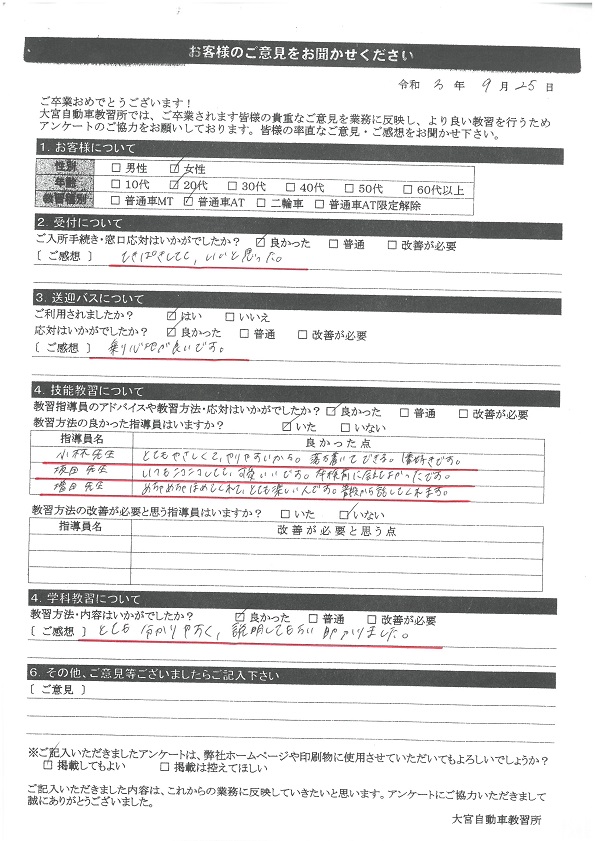 お客様のご意見をお聞かせください
令和 3 年 9 月 25 日
ご卒業おめでとうございます！
大宮自動車教習所では、ご卒業されます皆様の貴重なご意見を業務に反映し、より良い教習を行うため
アンケートのご協力をお願いしております。皆様の率直なご意見・ご感想をお聞かせ下さい。
1. お客様について
性別 □ 男性 ☑ 女性
年齢 □ 10代 ☑ 20代 □ 30代 □ 40代 □ 50代 □ 60代以上
教習種別 □ 普通車MT ☑ 普通車AT □ 二輪車 □ 普通車AT限定解除
2. 受付について
ご入所手続き・窓口応対はいかがでしたか？ ☑ 良かった □ 普通 □ 改善が必要
[ ご感想 ] てきぱきしてて、いいと思った。
3. 送迎バスについて
ご利用されましたか？ ☑ はい □ いいえ
応対はいかがでしたか？ ☑ 良かった □ 普通 □ 改善が必要
[ ご感想 ] 乗り心地が良いです。
4. 技能教習について
教習指導員のアドバイスや教習方法・応対はいかがでしたか？ ☑ 良かった □ 普通 □ 改善が必要
教習方法の良かった指導員はいますか？ ☑ いた □ いない
指導員名 良かった点
小林 先生 とてもやさしくて、やりやすいから。落ち着いてできる。
坂田 先生 いつもニコニコしてて、可愛いいです。
増田 先生 めちゃめちゃほめてくれて、とても楽しいんです。
教習方法の改善が必要と思う指導員はいますか？ □ いた ☑ いない
指導員名 改善が必要と思う点
4. 学科教習について
教習方法・内容はいかがでしたか？ ☑ 良かった □ 普通 □ 改善が必要
[ ご感想 ] とても分かりやすく、説明してもらい助かりました。
6. その他、ご意見等ございましたらご記入下さい
[ ご意見 ]
※ご記入いただきましたアンケートは、弊社ホームページや印刷物に使用させていただいてもよろしいでしょうか？
☑ 掲載してもよい □ 掲載は控えてほしい
ご記入いただきました内容は、これからの業務に反映していきたいと思います。アンケートにご協力いただきまして
誠にありがとうございました。
大宮自動車教習所